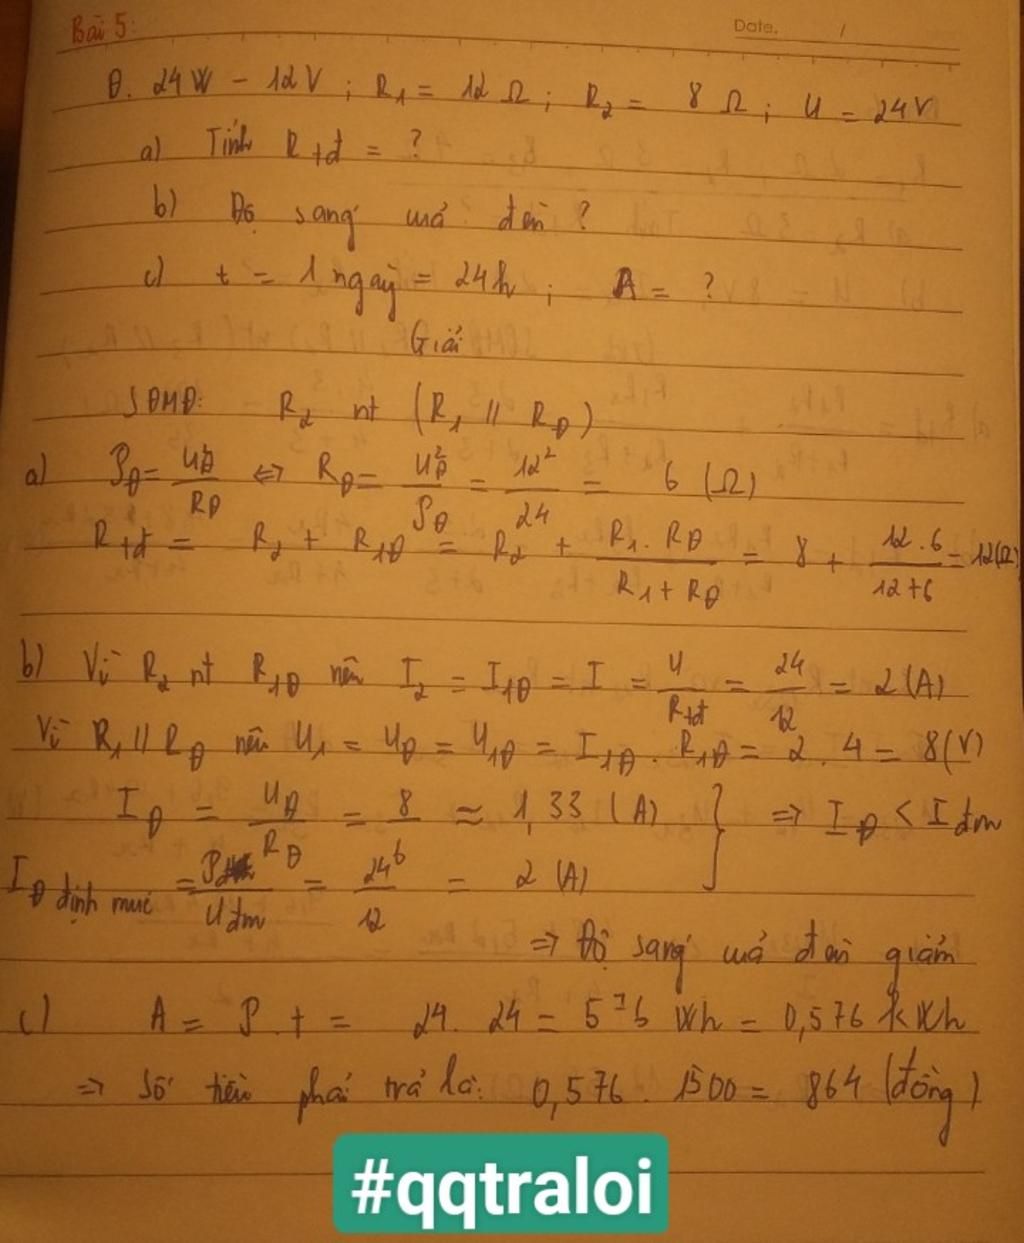 Bài 5:
Date. /
Đ. 24W - 12V ; R1 = 12 Ω ; R2 = 8 Ω ; U = 24V
a) Tính Rtđ = ?
b) Độ sáng của đèn ?
c) t = 1 ngày = 24h ; A = ?
Giải
SĐMĐ: R2 nt (R1 // RĐ)
a) PĐ = U²Đ/RĐ <=> RĐ = U²Đ/PĐ = 12²/24 = 6 (Ω)
Rtđ = R2 + R1Đ = R2 + R1.RĐ/R1+RĐ = 8 + 12.6/12+6 = 12(Ω)
b) Vì R2 nt R1Đ nên I2 = I1Đ = I = U/Rtđ = 24/12 = 2 (A)
Vì R1 // RĐ nên U1 = UĐ = U1Đ = I1Đ . R1Đ = 2 . 4 = 8(V)
IĐ = UĐ/RĐ = 8/6 ≈ 1,33 (A) } => IĐ < Iđm
IĐ định mức = P/Uđm = 24/12 = 2 (A)
=> Độ sáng của đèn giảm
c) A = P . t = 24. 24 = 576 Wh = 0,576 kWh
=> Số tiền phải trả là: 0,576 . 1500 = 864 (đồng)
#qqtraloi